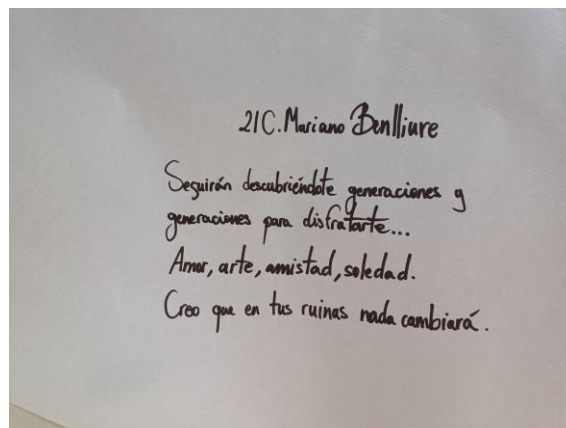 21C. Mariano Benlliure
Seguirán descubriéndote generaciones y
generaciones para disfratarte...
Amor, arte, amistad, soledad.
Creo que en tus ruinas nada cambiará.